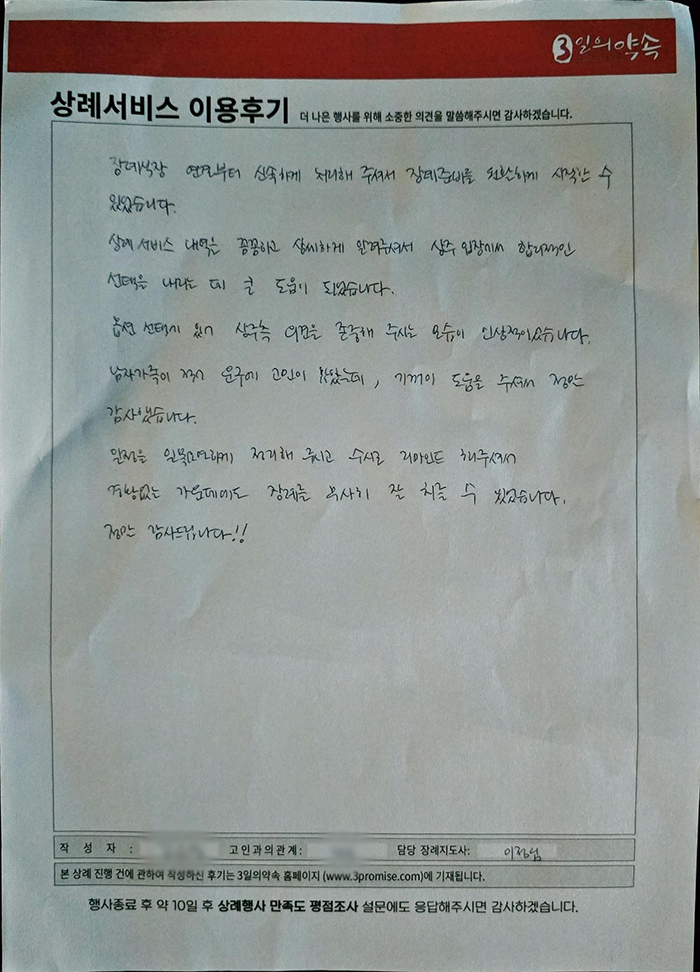 3일의약속
상례서비스 이용후기 더 나은 행사를 위해 소중한 의견을 말씀해주시면 감사하겠습니다.
장례식장 연결부터 신속하게 처리해 주셔서 장례준비를 원활하게 시작할 수
있었습니다.
상례 서비스 내역을 꼼꼼하고 상세하게 알려주셔서 상주 입장에서 합리적인
선택을 내리는 데 큰 도움이 되었습니다.
옵션 선택에 있어 상주측 의견을 존중해 주시는 모습이 인상적이었습니다.
남자가족이 적어 운구에 고민이 많았는데, 기꺼이 도움을 주셔서 정말
감사했습니다.
일정을 일목요연하게 정리해 주시고 수시로 리마인드 해주셔서
경황없는 가운데에도 장례를 무사히 잘 치를 수 있었습니다.
정말 감사드립니다!!
작 성 자 : 고인과의관계: 담당 장례지도사:
본 상례 진행 건에 관하여 작성하신 후기는 3일의약속 홈페이지 (www.3promise.com)에 기재됩니다.
행사종료 후 약 10일 후 상례행사 만족도 평점조사 설문에도 응답해주시면 감사하겠습니다.